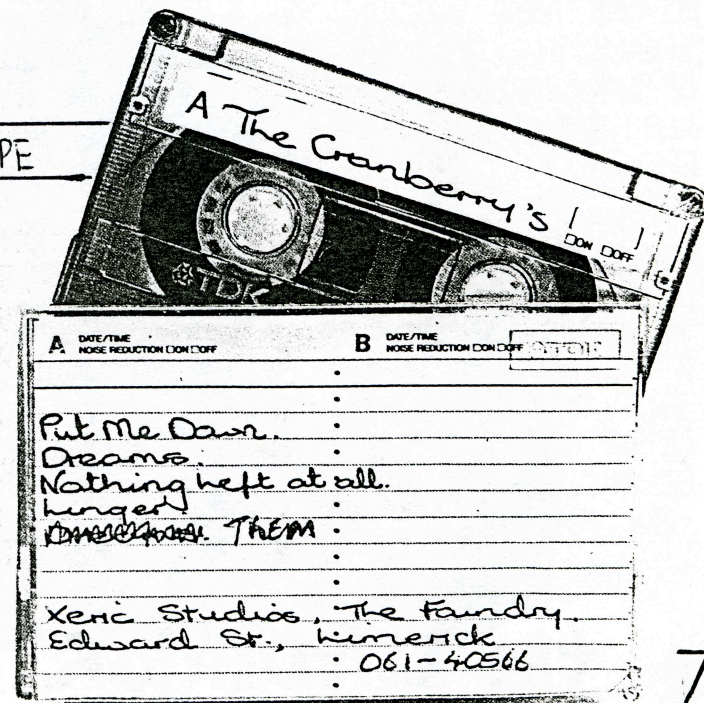 PE
A The Cranberry's
ON OFF
TDK
A DATE/TIME NOISE REDUCTION ON OFF
B DATE/TIME NOISE REDUCTION ON OFF
Put Me Down.
Dreams.
Nothing Left at all.
Linger.
Them
Xeric Studios, The Foundry.
Edward St., Limerick
061-40566